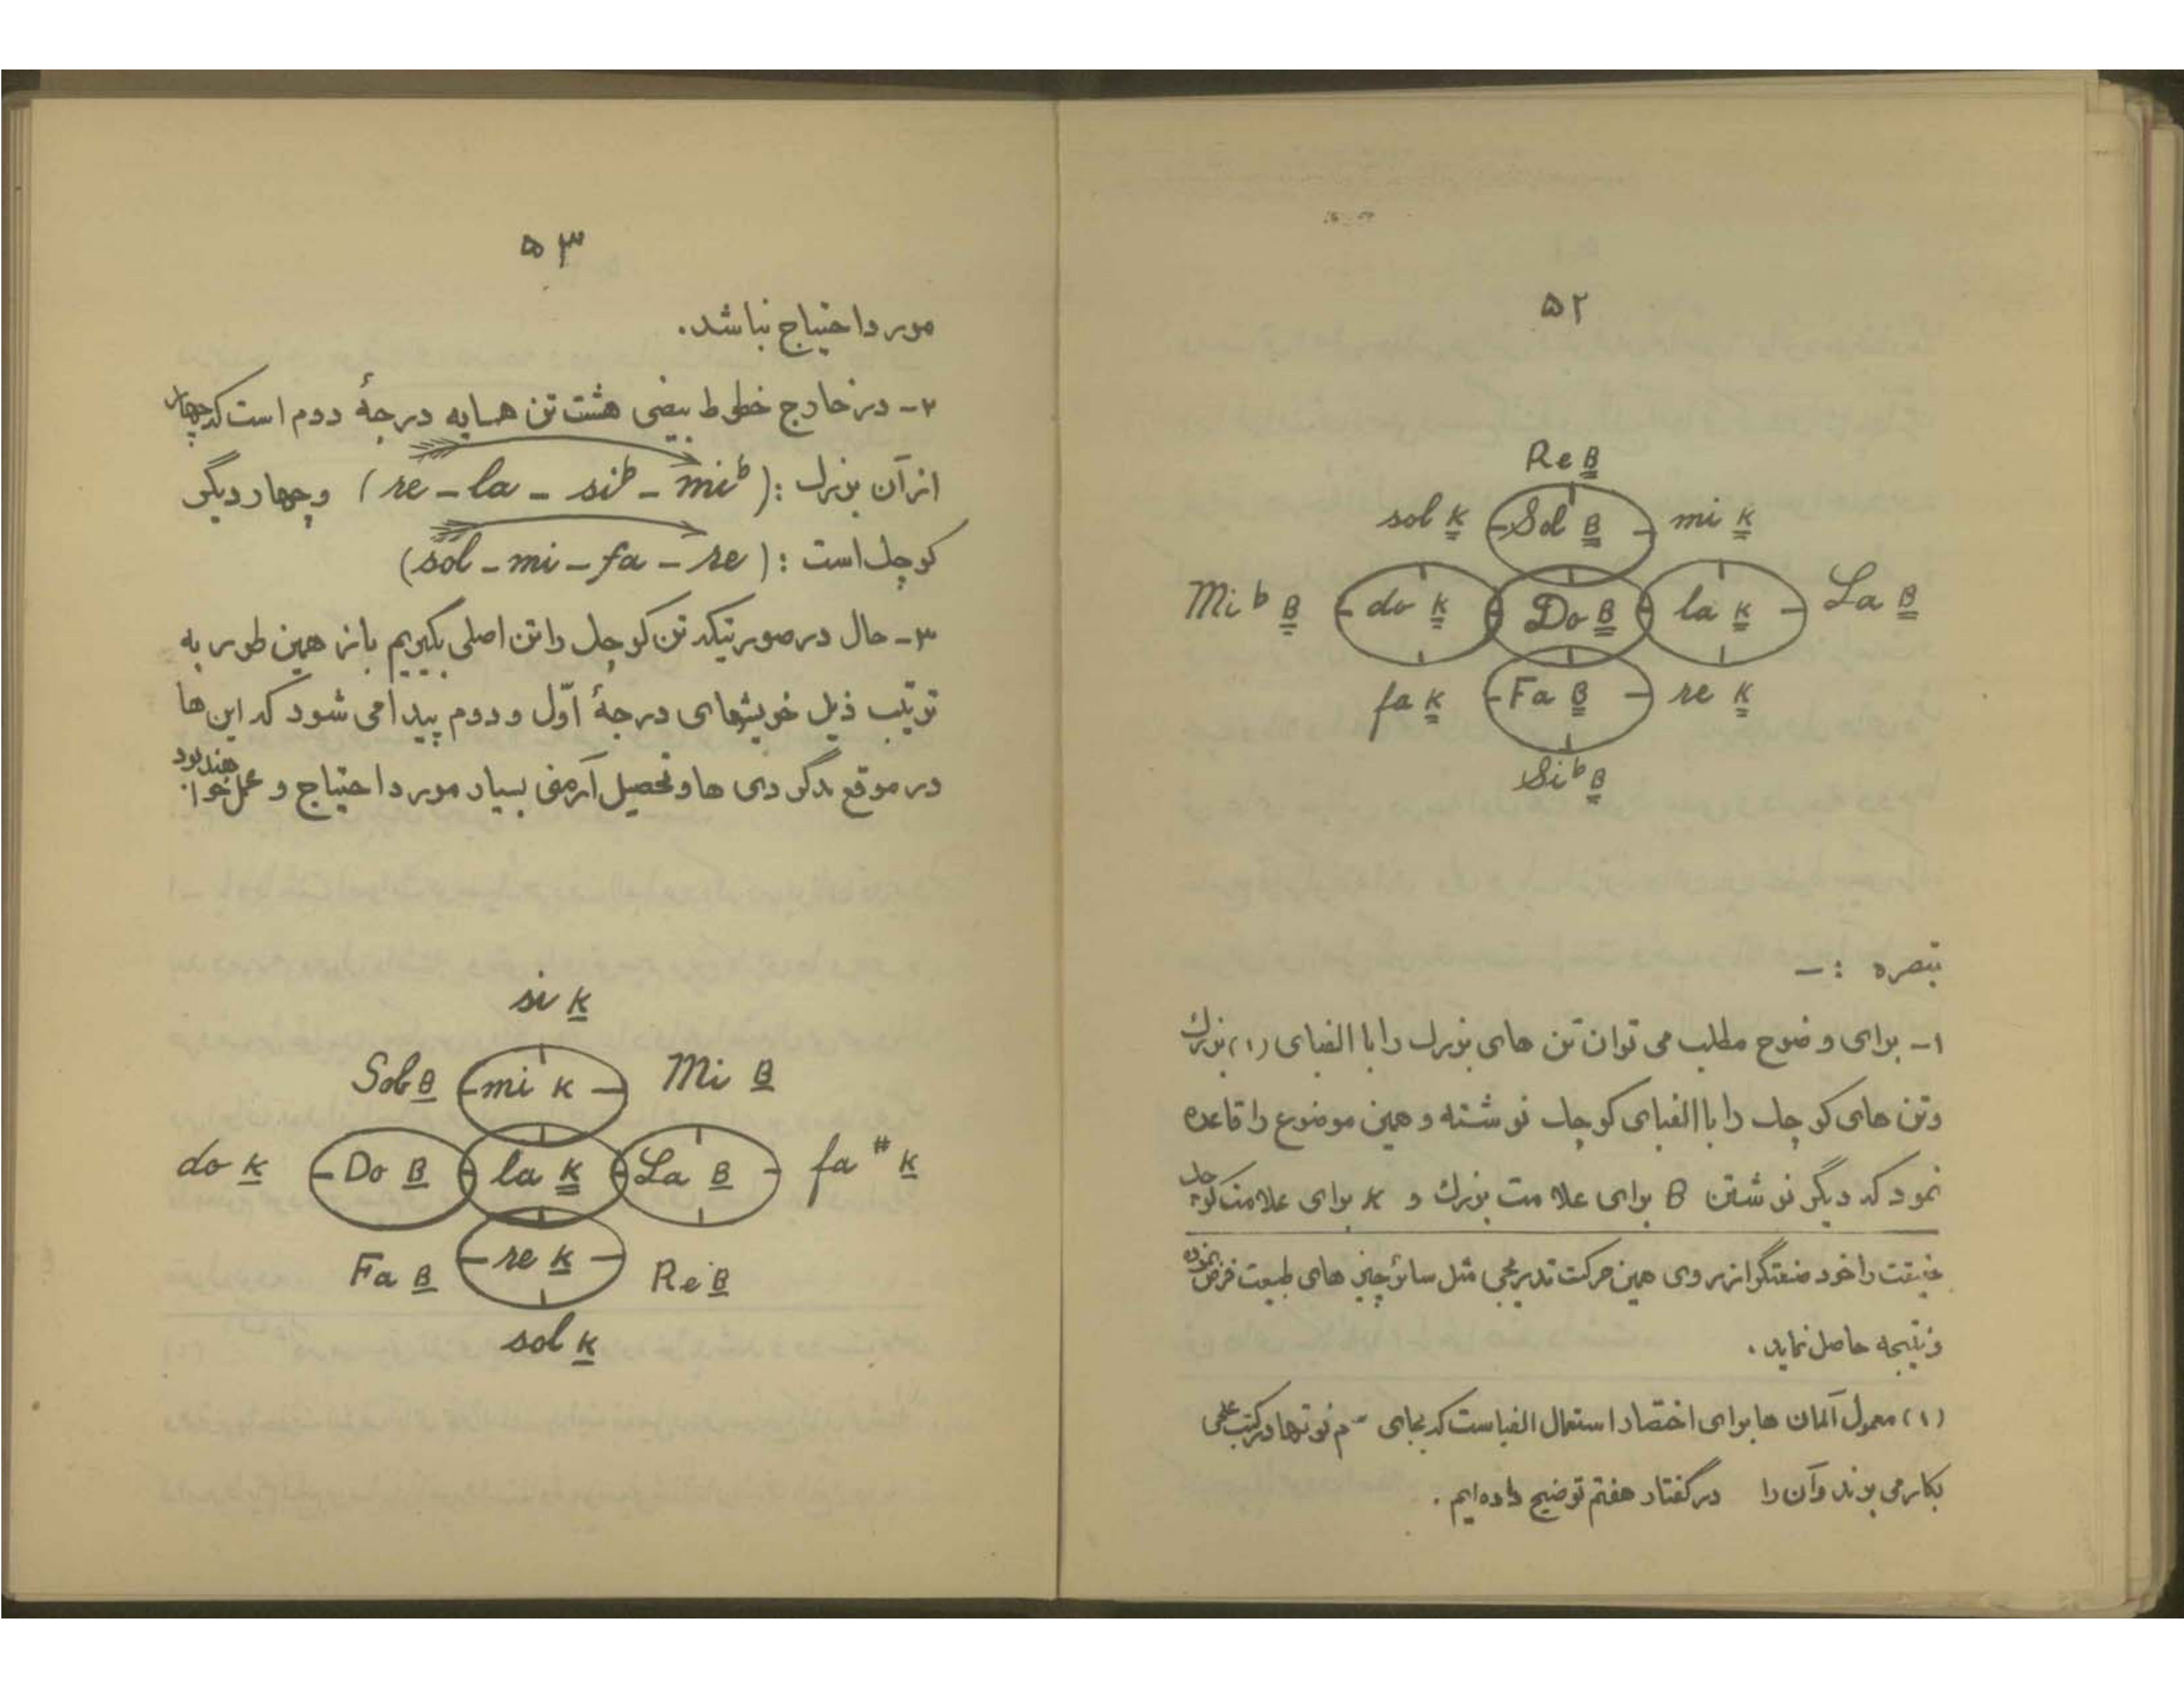 ۵۲
Re B
sol K Sol B mi K
Mi b B do K Do B la K La B
fa K Fa B re K
Si b B
تبصره : –
۱- برای وضوح مطلب می توان تن های بزرگ را با الفبای (۱) بزرگ
وتن های کوچک را با الفبای کوچک نوشته و همین موضوع را قاعده
نمود که دیگر نوشتن B برای علامت بزرگ و K برای علامت کوچک
حقیقت را خود صنعتگر از روی همین حرکت تدریجی مثل سائر چیز های طبیعت فرض نموده
ونتیجه حاصل نماید .
(۱) معمول آلمان ها برای اختصار استعمال الفباست که بجای اسم نوتها در کتب علمی
بکار می برند وآن را در گفتار هفتم توضیح داده ایم .
۵۳
مورد احتیاج نباشد.
۲- در خارج خطوط بیضی هشت تن همسایه درجهٔ دوم است که چهار
از آن بزرگ : (re – la – si b – mi b) وچهار دیگر
کوچک است : (sol – mi – fa – re)
۳- حال در صورتیکه تن کوچک را تن اصلی بگیریم باز همین طور به
ترتیب ذیل خویشهای درجهٔ اوّل و دوم پیدا می شود که این ها
در موقع مدگردی ها و تحصیل آرمنی بسیار مورد احتیاج و عمل خواهند بود
si K
Sol B mi K Mi B
do K Do B la K La B fa # K
Fa B re K Re B
sol K